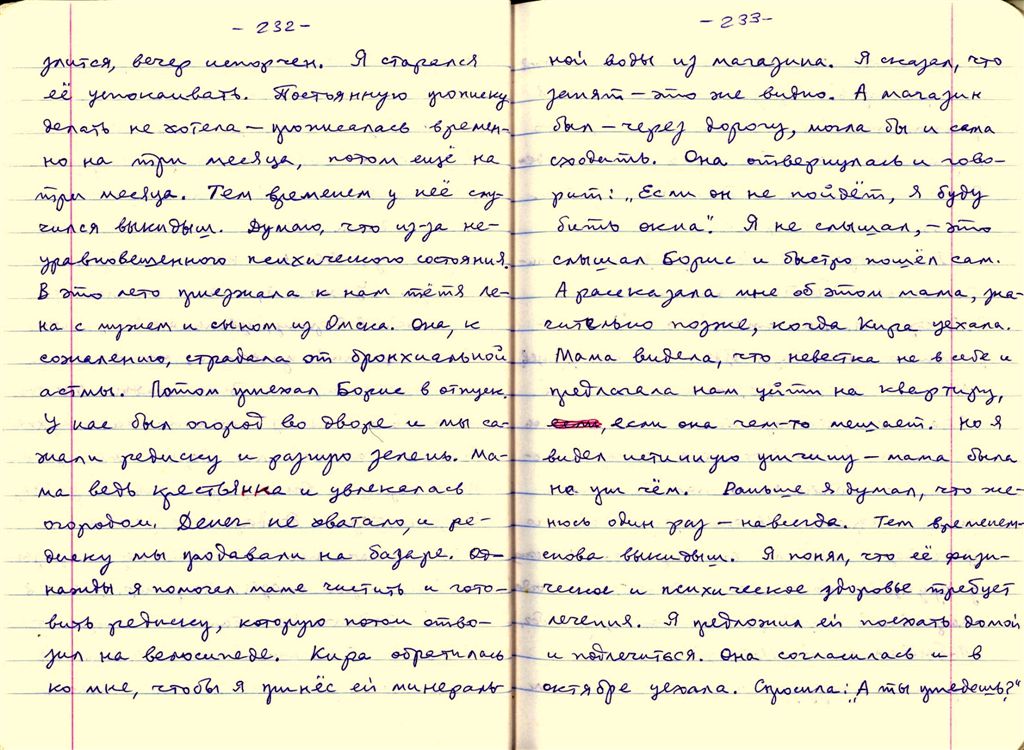 - 232 -
злится, вечер испорчен. Я старался
её успокаивать. Постоянную прописку
делать не хотела — прописалась времен-
но на три месяца, потом ещё на
три месяца. Тем временем у неё слу-
чился выкидыш. Думаю, что из-за не-
уравновешенного психического состояния.
В это лето приезжала к нам тётя Ле-
на с мужем и сыном из Омска. Она, к
сожалению, страдала от бронхиальной
астмы. Потом приехал Борис в отпуск.
У нас был огород во дворе и мы са-
жали редиску и разную зелень. Ма-
ма ведь крестьянка и увлекалась
огородом. Денег не хватало, и ре-
диску мы продавали на базаре. Од-
нажды я помогал маме чистить и гото-
вить редиску, которую потом отво-
зил на велосипеде. Кира обратилась
ко мне, чтобы я принёс ей минераль-
- 233 -
ной воды из магазина. Я сказал, что
занят — это же видно. А магазин
был — через дорогу, могла бы и сама
сходить. Она отвернулась и гово-
рит: „Если он не пойдёт, я буду
бить окна". Я не слышал, — это
слышал Борис и быстро пошёл сам.
А рассказала мне об этом мама, зна-
чительно позже, когда Кира уехала.
Мама видела, что невестка не в себе и
предлагала нам уйти на квартиру,
если она чем-то мешает. Но я
видел истинную причину — мама была
ни при чём. Раньше я думал, что же-
нюсь один раз — навсегда. Тем временем-
снова выкидыш. Я понял, что её физи-
ческое и психическое здоровье требует
лечения. Я предложил ей поехать домой
и подлечиться. Она согласилась и в
октябре уехала. Спросила: „А ты приедешь?"